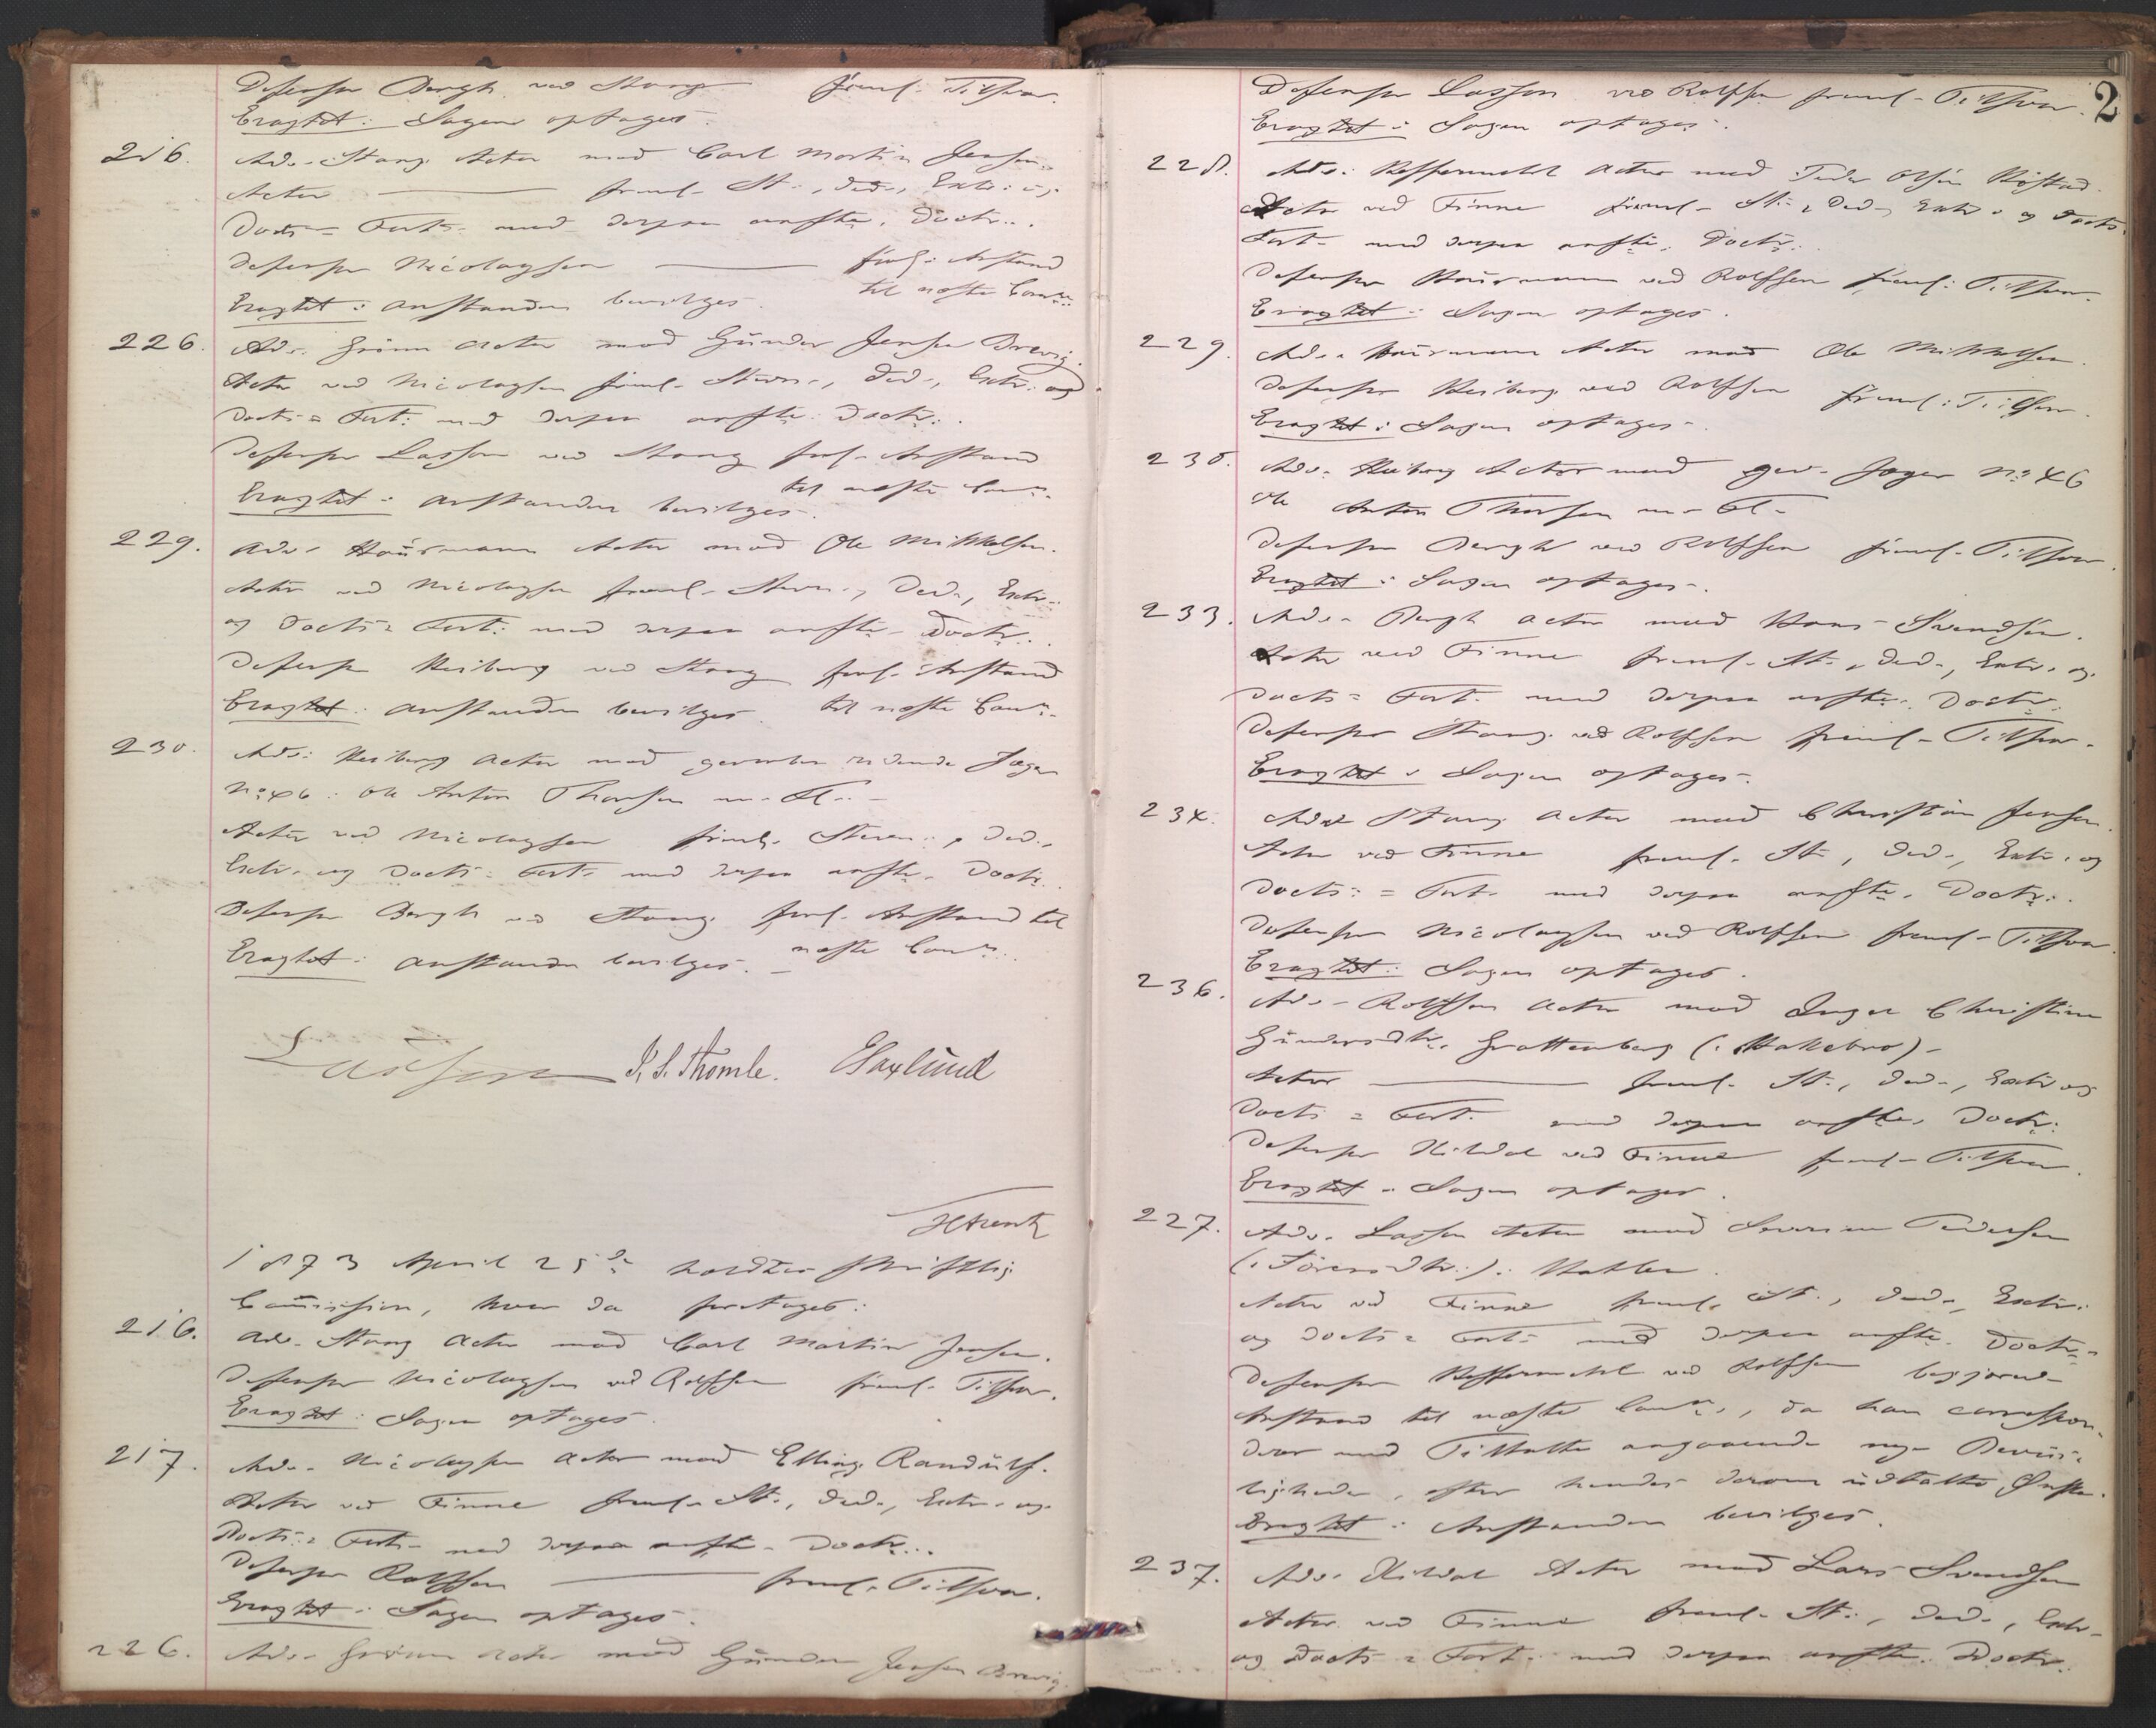 Defensor Bergh ved Stang freml. Tilsvar.
Eragtet: Sagen optages.
216. Adv. Stang Actor mod Carl Martin Jensen.
Actor — freml. St., Ded., Extr. og
Docts = Fort. med derpaa anfte. Doctr.
Defensor Nicolaysen — forl. Anstand
til næste Comm.
Eragtet: Anstanden bevilges.
226. Adv. Grönn Actor mod Gunder Jensen Brevig.
Actor ved Nicolaysen freml. Stevn., Ded., Extr. og
Docts = Fort. med derpaa anfte. Doctr.
Defensor Lasson ved Stang forl. Anstand
til næste Comm.
Eragtet: Anstanden bevilges.
229. Adv. Hourmann Actor mod Ole Mikkelsen.
Actor ved Nicolaysen freml. Stevn., Ded., Extr.
og Docts = Fort. med derpaa anfte. Doctr.
Defensor Heiberg ved Stang forl. Anstand
Eragtet: Anstanden bevilges. til næste Comm.
230. Adv. Heiberg Actor mod geworben ridende Jæger
No 46: Ole Anton Thorsen m. Fl.
Actor ved Nicolaysen freml. Stevn., Ded.,
Extr. og Docts = Fort. med derpaa anfte. Doctr.
Defensor Bergh ved Stang forl. Anstand til
næste Comm.
Eragtet: Anstanden bevilges.
J. S. Thomle. E Saxlund
1873 April 25de holdtes skriftlig
Commission, hvor da foretoges:
216. Adv. Stang Actor mod Carl Martin Jensen.
Defensor Nicolaysen ved Rolfsen freml. Tilsvar.
Eragtet: Sagen optages.
217. Adv. Nicolaysen Actor mod Elling Randulf.
Actor ved Finne freml. St., Ded., Extr. og
Docts = Fort. med derpaa anfte. Doctr.
Defensor Rolfsen — freml. Tilsvar.
Eragtet: Sagen optages.
226. Adv. Grönn Actor mod Gunder Jensen Brevig.
2
Defensor Lasson ved Rolfsen freml. Tilsvar.
Eragtet: Sagen optages.
228. Adv. Actor mod Peder Olsen
Actor ved Finne freml. St., Ded., Extr. og Docts
Fort. med derpaa anfte. Doctr.
Defensor Hourmann ved Rolfsen freml. Tilsvar.
Eragtet: Sagen optages.
229. Adv. Hourmann Actor mod Ole Mikkelsen.
Defensor Heiberg ved Rolfsen freml. Tilsvar.
Eragtet: Sagen optages.
230. Adv. Heiberg Actor mod gev. Jæger No 46
Ole Anton Thorsen m. Fl.
Defensor Bergh ved Rolfsen freml. Tilsvar.
Eragtet: Sagen optages.
233. Adv. Bergh Actor mod Hans Svendsen.
Actor ved Finne freml. St., Ded., Extr. og
Docts = Fort. med derpaa anfte. Doctr.
Defensor Stang ved Rolfsen freml. Tilsvar.
Eragtet: Sagen optages.
234. Adv. Stang Actor mod Christian Jensen.
Actor ved Finne freml. St., Ded., Extr. og
Docts = Fort. med derpaa anfte. Doctr.
Defensor Nicolaysen ved Rolfsen freml. Tilsvar.
Eragtet: Sagen optages.
236. Adv. Rolfsen Actor mod Inger Christine
Gundersdtr. Grottenberg (: Hakebro)
Actor — freml. St., Ded., Extr. og
Docts = Fort. med derpaa anfte. Doctr.
Defensor Kildal ved Finne freml. Tilsvar.
Eragtet: Sagen optages.
227. Adv. Lasson Actor mod Severine Pedersen
Actor ved Finne freml. St., Ded., Extr.
og Docts = Fort. med derpaa anfte. Doctr.
Defensor ved Rolfsen begjærede
Anstand til næste Comm., da han correspon-
derer med Tiltalte angaaende nye Beviis-
ligheder, efter hendes derom udtalte Ønske.
Eragtet: Anstanden bevilges.
237. Adv. Kildal Actor mod Lars Svendsen
Actor ved Finne freml. St., Ded., Extr.
og Docts = Fort. med derpaa anfte. Doctr.